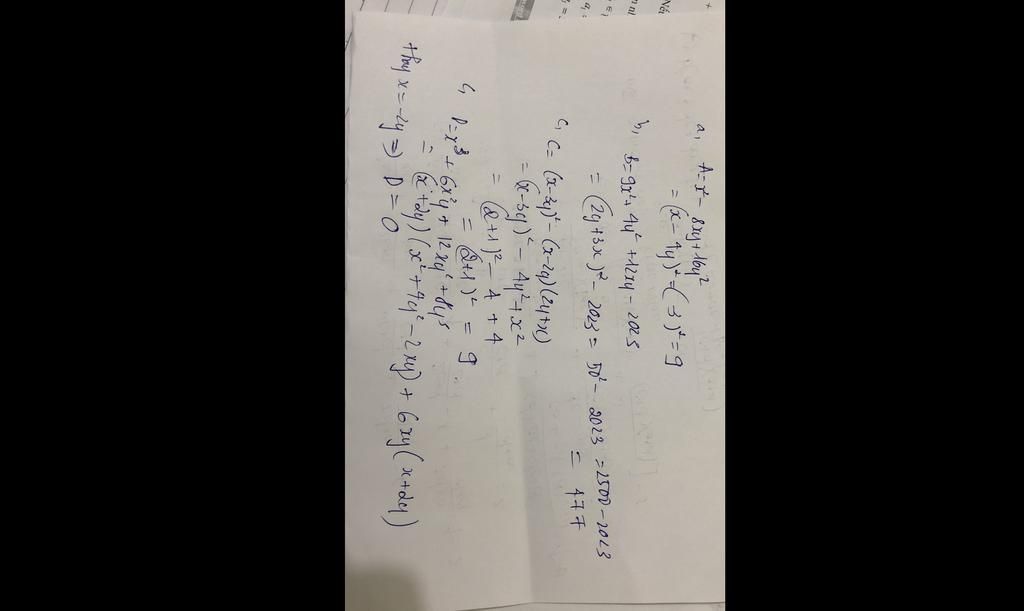 a, A = x² - 8xy + 16y²
= (x - 4y)² = (-3)² = 9
b, B = 9x² + 4y² + 12xy - 2023
= (2y + 3x)² - 2023 = 50² - 2023 = 2500 - 2023
= 477
c, C = (x - 3y)² - (x - 2y)(2y + x)
= (x - 3y)² - 4y² + x²
= (2 + 1)² - 4 + 4
= (2 + 1)² = 9
D = x³ + 6x²y + 12xy² + 8y³
= (x + 2y)(x² + 4y² - 2xy) + 6xy(x + 2y)
thay x = -2y => D = 0